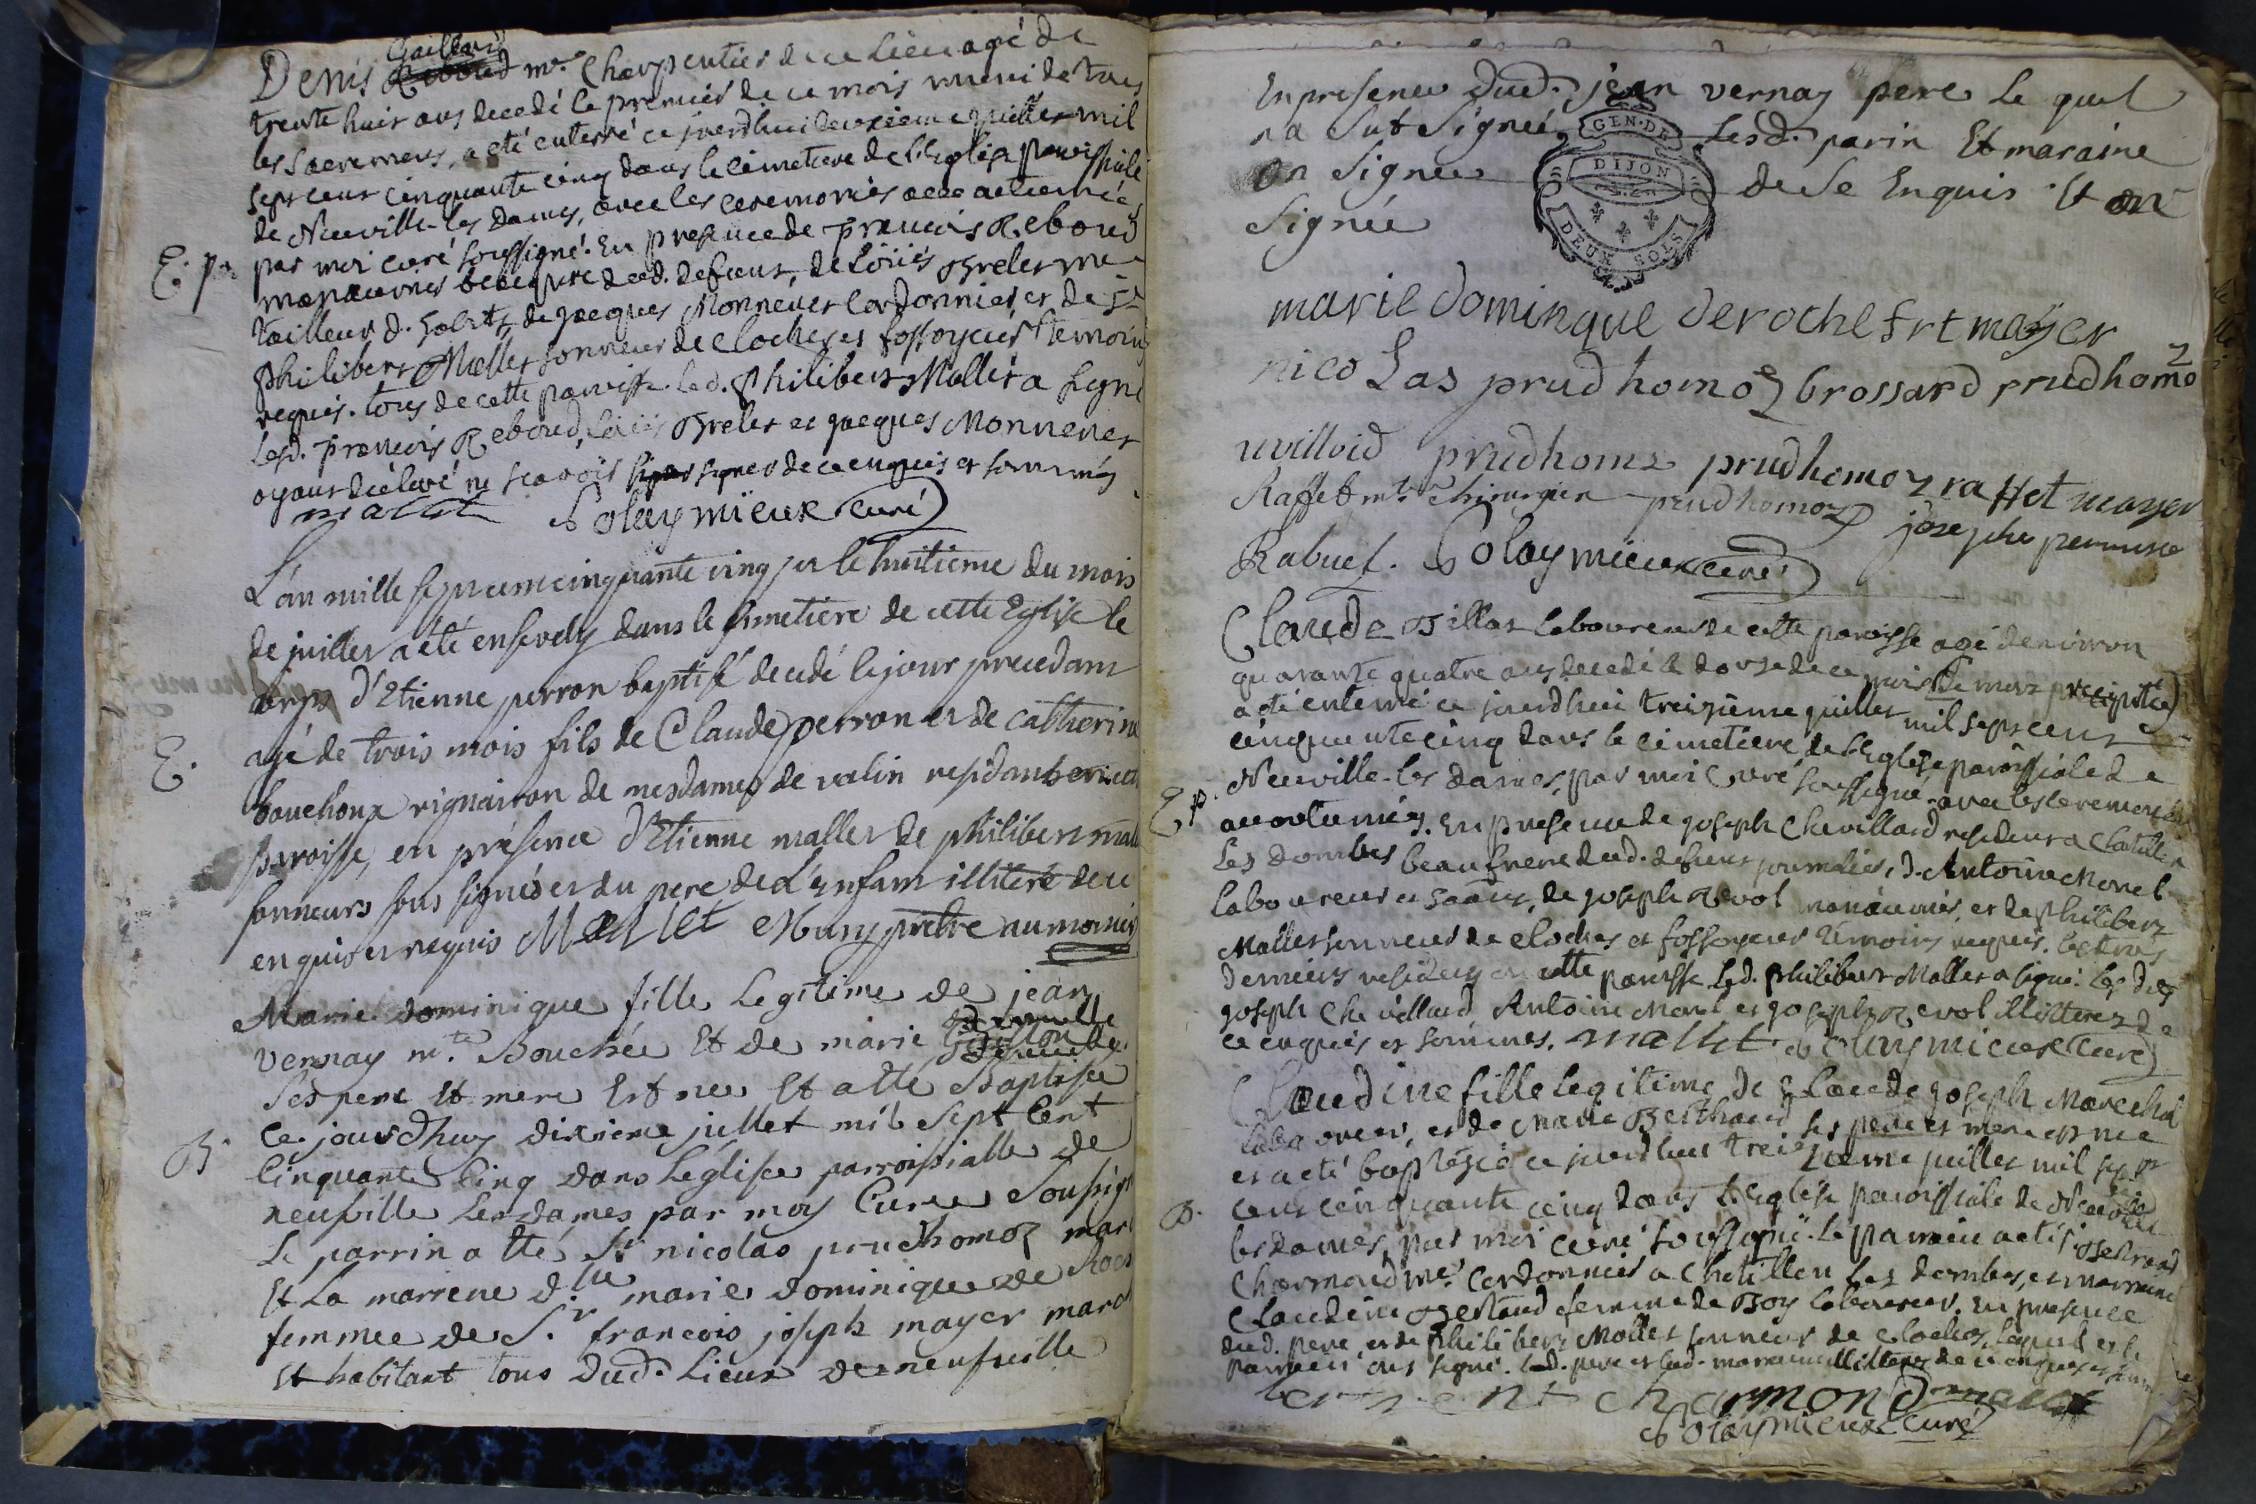 Gaillard
Denis Reboud me. Charpentier de ce Lieu agé de
trente huit ans decedé le premier de ce mois muni de tous
les Sacremens, a eté enterré ce jourdhui deuxieme juillet mil
sept cent cinquante cinq dans le cimetiere de l'Eglise paroissiale
de Neuville-les dames, avec les ceremonies accoutumées
E. p. par moi curé soussigné. En presence de francois Reboud
manœuvrier beaupere dud. defunt, de Loüis Brelet me
tailleur d. habits, de jacques Monnevet Cordonnier et de
philibert Mallet sonneur de cloches et fossoyeur temoins
requis. tous de cette paroisse. led. philibert Mallet a signé
Lesd. francois Reboud, Loüis Brelet et jacques Monnevet
ayant déclaré ne scavoir signer de ce enquis et sommés
mallet Polaymieux curé
L'an mille sept cent cinquante cinq et le huitieme du mois
de juillet a été ensevely dans le cimetiere de cette Eglise le
corps d'Etienne perron baptisé decedé le jour precedant
agé de trois mois fils de Claude perron et de Catherine
E. bouchoux vigneron de mesdames de valin residants en cette
paroisse, en présence d'Etienne mallet de philibert mallet
sonneurs sous signés et du pere de L'enfant illiteré de ce
enquis et requis Mallet Mury prêtre aumonier
Marie dominique fille Legitime de jean
vernay mte. Bouchée Et de marie
Ses pere Et mere Est nee Et a ette Baptisee
B. Ce jourdhuy dixieme jullet mil Sept Cent
Cinquante Cinq dans Leglise parroissialle de
neufville Les dames par moy Curee Sousigné
Le parrin a tté Sr nicolas prudhomoz mar
Et La marrene dlle marie dominique de Roch
femmee de Sr. francois joseph mayer march
Et habitant tous Dud. Lieux de neufville
En presence Dud. jean vernay pere Le quel
na Sut Signée Lesd. parin Et maraine
On Signee de Se Enquis Et ont
Signée
GEN. DE
DIJON
DEUX SOLS
marie dominque deroche frt mayer
nicolas prudhomoz brossard prudhomoz
prudhome prudhomoz raffet mayer
Raffet mtr Chirurgien prudhomoz josephe
Rabuel. Polaymieux curé
Claude Billat Laboureur de cette paroisse agé denviron
quarante quatre ans decedé le douze de ce mois de mort precipitée
a eté enterré ce jourdhui treizieme juillet mil sept cent
cinquante cinq dans le cimetiere de l'Eglise paroissiale de
Neuville-les dames, par moi Curé soussigné avec les ceremonies
E p. accoutumées. En presence de joseph Chevillard resident a Chatillon
Les dombes beaufrere dud. defunt journalier, d. Antoine Morel
Laboureur en , de joseph Revol manœuvrier, et de philibert
Mallet sonneur de cloches et fossoyeur temoins requis. les trois
derniers residens en cette paroisse. Led. Philibert Mallet a signé. Les dits
joseph Chevillard Antoine Morel et joseph Revol illitterez de
ce enquis et sommés. mallet Polaymieux curé
Claudine fille legitime de Claude joseph Marechal
Laboureur, et de Marie Berthaud ses pere et mere est née
et a eté baptisée ce jourdhui treizieme juillet mil sept
B. cent cinquante cinq dans l'Eglise paroissiale de Neuville
les dames, par moi curé soussigné. Le parrain a eté
Charmond me. Cordonnier a Chatillon Les dombes, et marraine
Claudine Bertaud femme de Boy Laboureur. En presence
dud. pere et de philibert Mallet sonneur de cloches, lequel et le
parrain ont signé. Led. pere et lad. marraine illitterez de ce enquis et
charmond mallet
Polaymieux curé